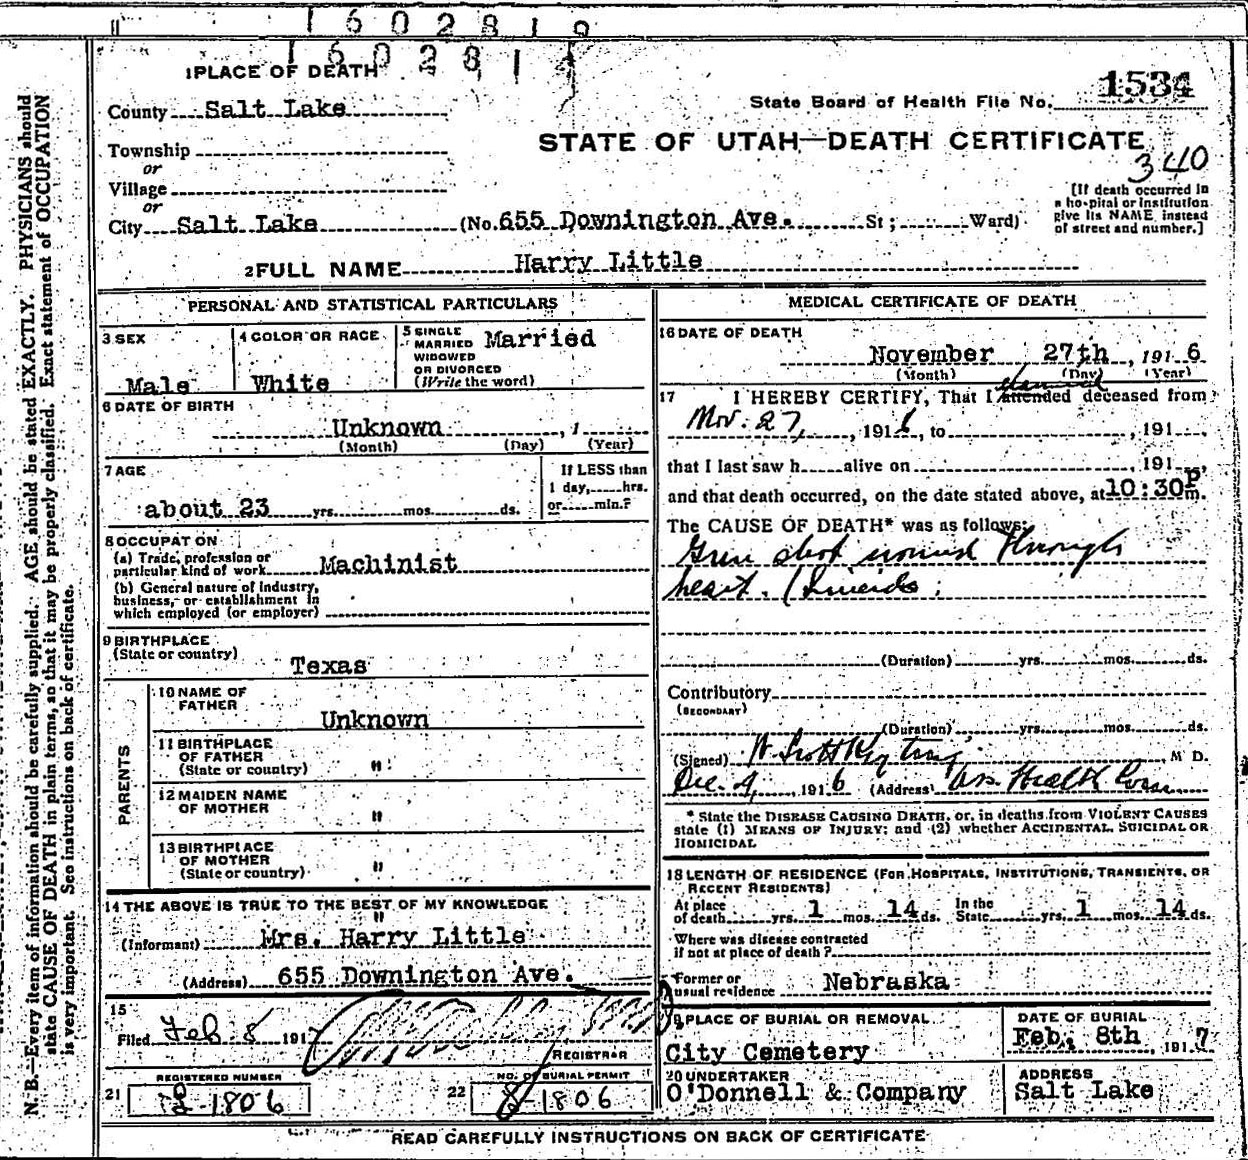 1602819
160281
1 PLACE OF DEATH
County Salt Lake
State Board of Health File No. 1534
STATE OF UTAH—DEATH CERTIFICATE
340
Township
or
Village
or
City Salt Lake (No. 655 Downington Ave. St; Ward)
[If death occurred in
a hospital or institution
give its NAME instead
of street and number.]
2 FULL NAME Harry Little
PERSONAL AND STATISTICAL PARTICULARS
3 SEX
Male
4 COLOR OR RACE
White
5 SINGLE
MARRIED
WIDOWED
OR DIVORCED
(Write the word)
Married
6 DATE OF BIRTH
Unknown , 1
(Month) (Day) (Year)
7 AGE
about 23 yrs. mos. ds.
If LESS than
1 day, hrs.
or min.?
8 OCCUPATION
(a) Trade, profession or
particular kind of work Machinist
(b) General nature of industry,
business, or establishment in
which employed (or employer)
9 BIRTHPLACE
(State or country)
Texas
PARENTS
10 NAME OF
FATHER
Unknown
11 BIRTHPLACE
OF FATHER
(State or country) "
12 MAIDEN NAME
OF MOTHER "
13 BIRTHPLACE
OF MOTHER
(State or country) "
14 THE ABOVE IS TRUE TO THE BEST OF MY KNOWLEDGE
"
(Informant) Mrs. Harry Little
(Address) 655 Downington Ave.
15
Filed Feb 8 1917
REGISTRAR
REGISTERED NUMBER
21 1806
NO. OF BURIAL PERMIT
22 1806
MEDICAL CERTIFICATE OF DEATH
16 DATE OF DEATH
November 27th , 1916
(Month) (Day) (Year)
17 I HEREBY CERTIFY, That I attended deceased from
Nov. 27, , 1916, to , 191 ,
that I last saw h alive on , 191 ,
and that death occurred, on the date stated above, at 10:30P m.
The CAUSE OF DEATH* was as follows:
Gun shot wound through
heart. (Suicide.
(Duration) yrs. mos. ds.
Contributory
(SECONDARY)
(Duration) yrs. mos. ds.
(Signed) W Scott Keyting M D.
Dec. 4, , 1916 (Address) Health Com
* State the DISEASE CAUSING DEATH, or, in deaths from VIOLENT CAUSES
state (1) MEANS OF INJURY; and (2) whether ACCIDENTAL, SUICIDAL OR
HOMICIDAL
18 LENGTH OF RESIDENCE (FOR HOSPITALS, INSTITUTIONS, TRANSIENTS, OR
RECENT RESIDENTS)
At place
of death yrs. 1 mos. 14 ds.
In the
State yrs. 1 mos. 14 ds.
Where was disease contracted
if not at place of death?
Former or
usual residence Nebraska
19 PLACE OF BURIAL OR REMOVAL
City Cemetery
DATE OF BURIAL
Feb. 8th , 1917
20 UNDERTAKER
O'Donnell & Company
ADDRESS
Salt Lake
READ CAREFULLY INSTRUCTIONS ON BACK OF CERTIFICATE
N. B.—Every item of information should be carefully supplied. AGE should be stated EXACTLY. PHYSICIANS should
state CAUSE OF DEATH in plain terms, so that it may be properly classified. Exact statement of OCCUPATION
is very important. See instructions on back of certificate.